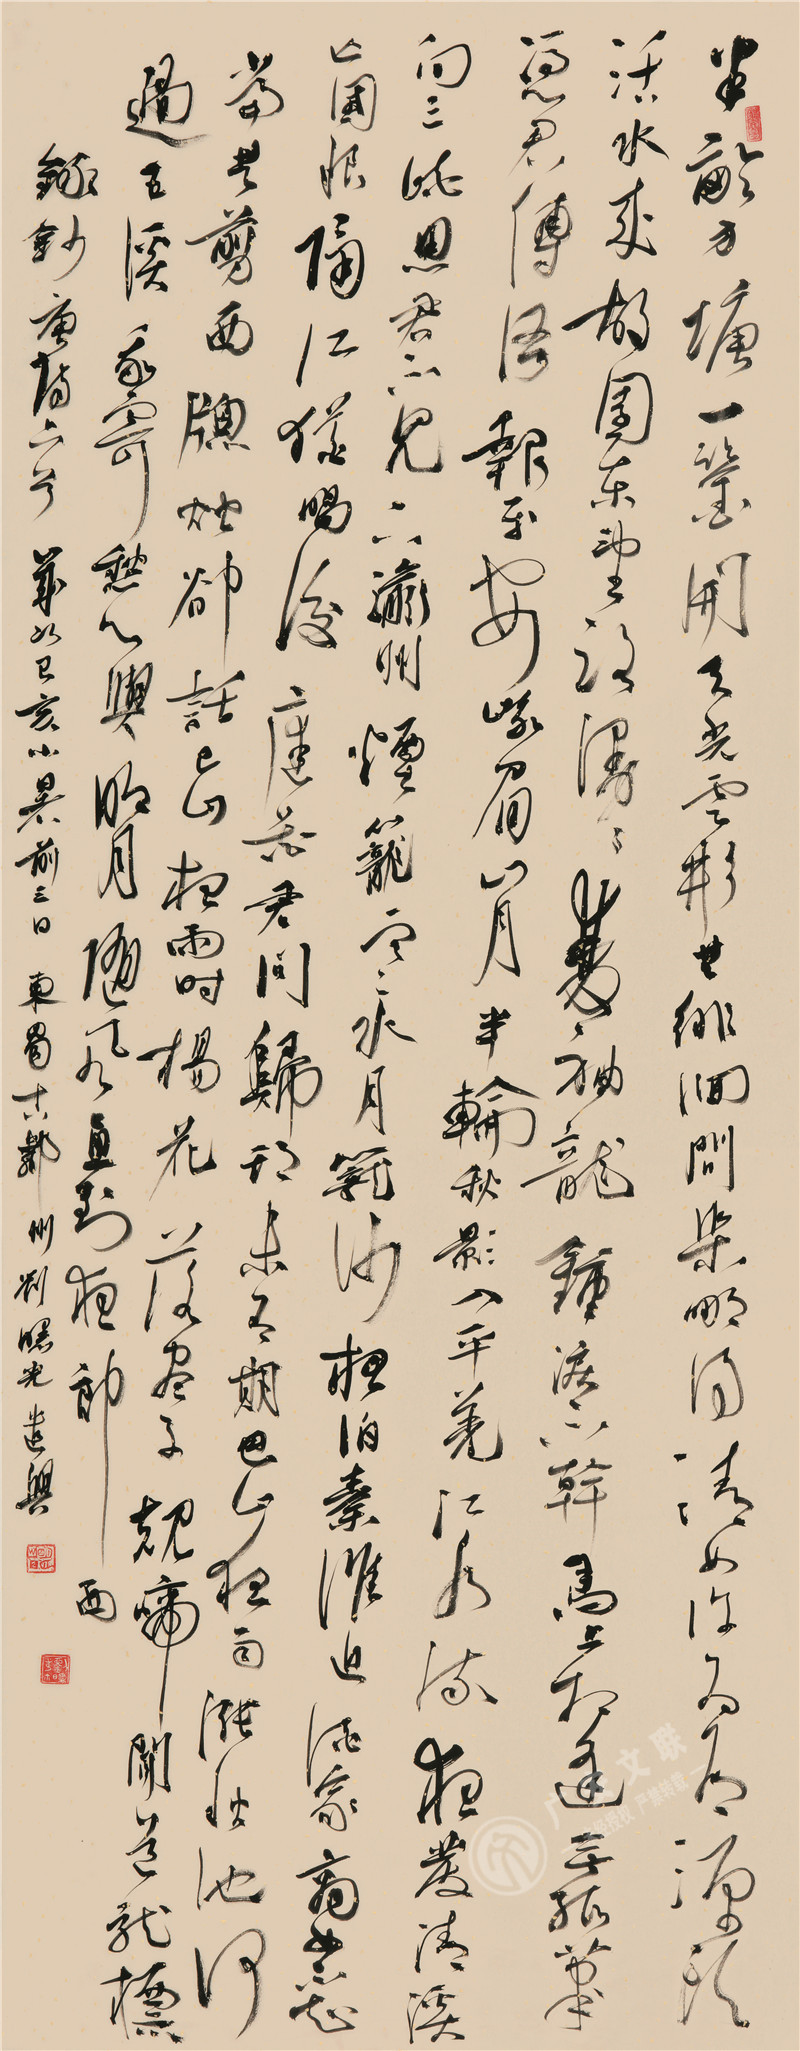 半畝方塘一鑒開天光雲影共徘徊問渠哪得清如許為有源頭
活水來故園東望路漫漫雙袖龍鍾淚不幹馬上相逢無紙筆
憑君傳語報平安峨眉山月半輪秋影入平羌江水流夜發清溪
向三峽思君不見下州煙籠寒水月籠沙夜泊秦淮近酒家商女不知
亡國恨隔江猶唱後庭花君問歸期未有期巴山夜雨漲秋池何
當共剪西牕燭卻話巴山夜雨時楊花落盡子規啼聞道龍標
過五溪我寄愁心與明月隨風直到夜郎西
鈔唐詩六首歲次己亥小暑前三日東蜀古鄰州劉曙光遣興
广安文联
未经授权 严禁转载